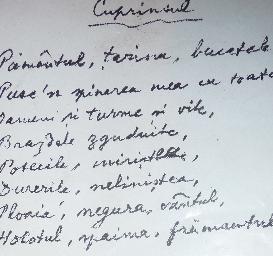 Cuprinsul
Pământul, țarina, bucatele
Puse'n spinarea mea cu toate
Oameni și turme și vite,
Brazdele zguduite,
Potecile,
Durerile, neliniștea,
Ploaia, negura, vântul,
Holotul, spaima, frământul